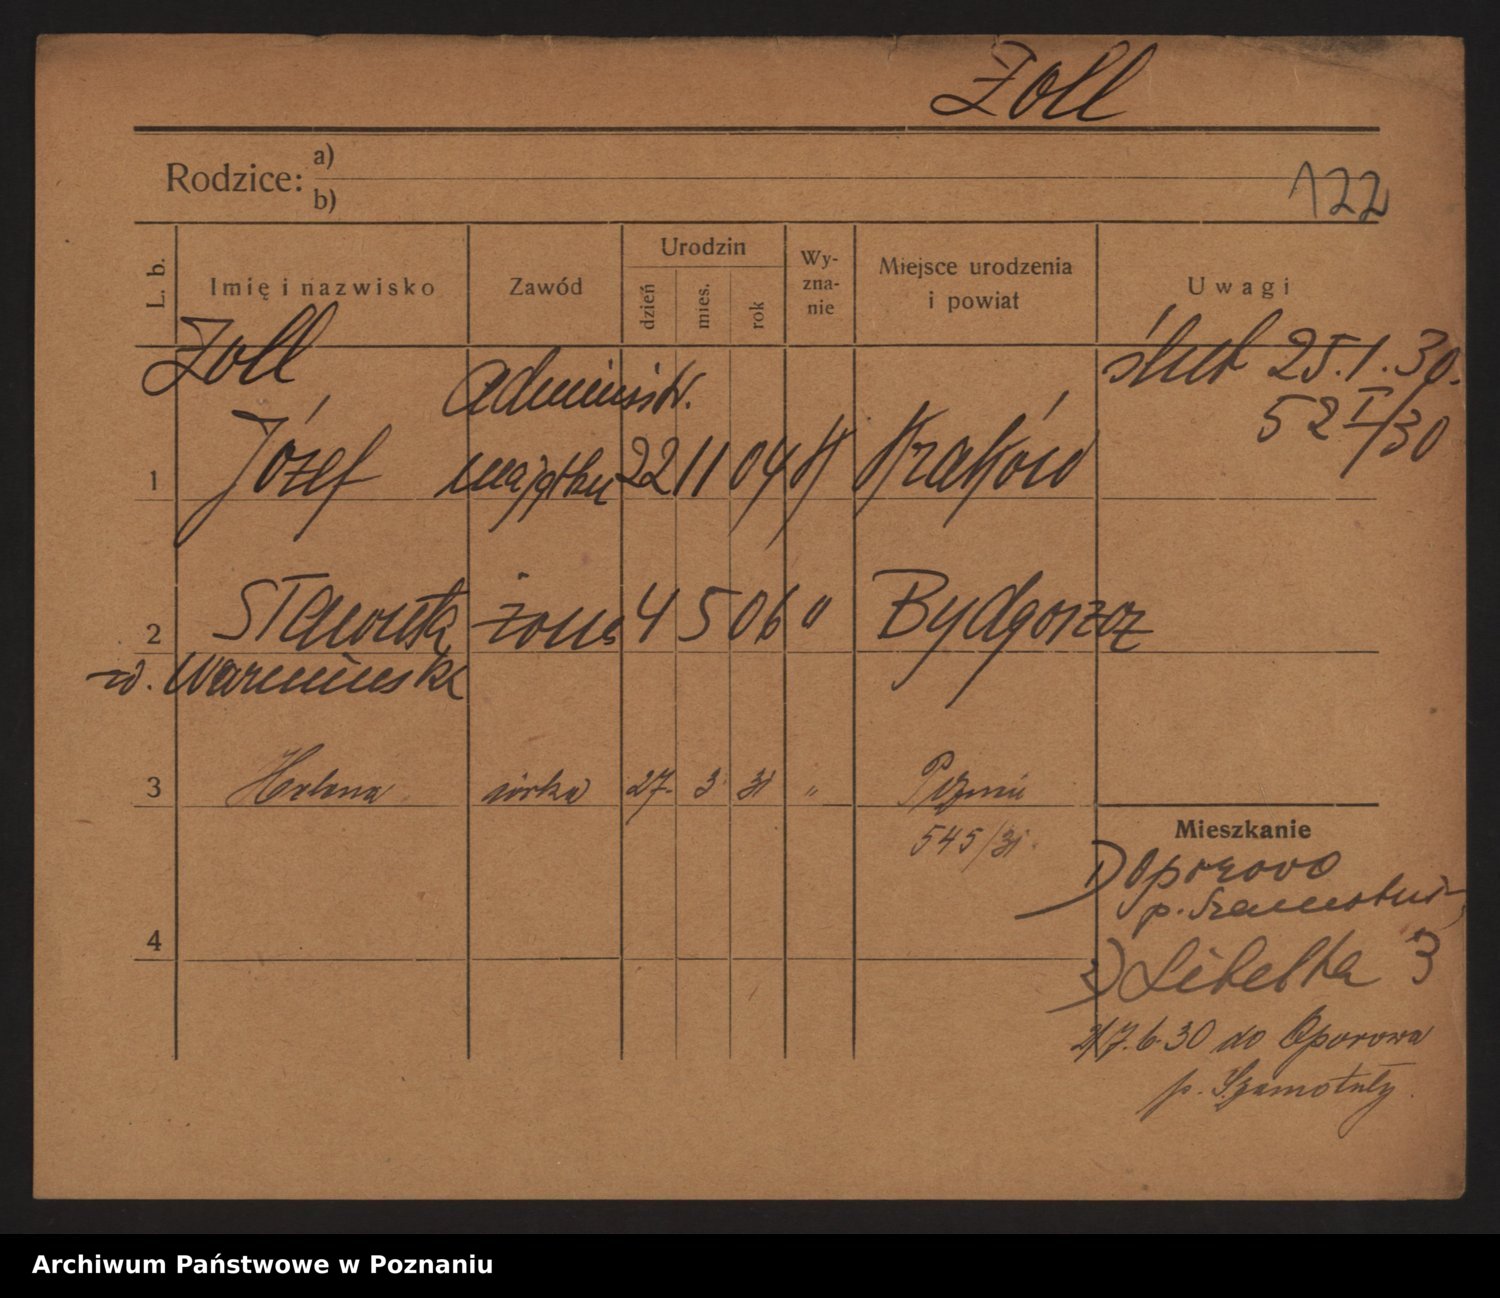 Zoll
Rodzice: a)
b)
122
L. b. Imię i nazwisko Zawód Urodzin dzień mies. rok Wy-zna-nie Miejsce urodzenia i powiat Uwagi
Zoll
ślub 25.1.30.
administr.
52 I/30
1 Józef majątku 22 11 04 K Kraków
2 Sławomiła żona 4 5 06 " Bydgoszcz
z d. Warmińska
3 Helena córka 27. 3 31 " Poznań
545/31.
Mieszkanie
1) Oporowo
p. Szamotuł-
4
2) Libelta 3
17.6.30 do Oporowa
p. Szamotuły.
Archiwum Państwowe w Poznaniu